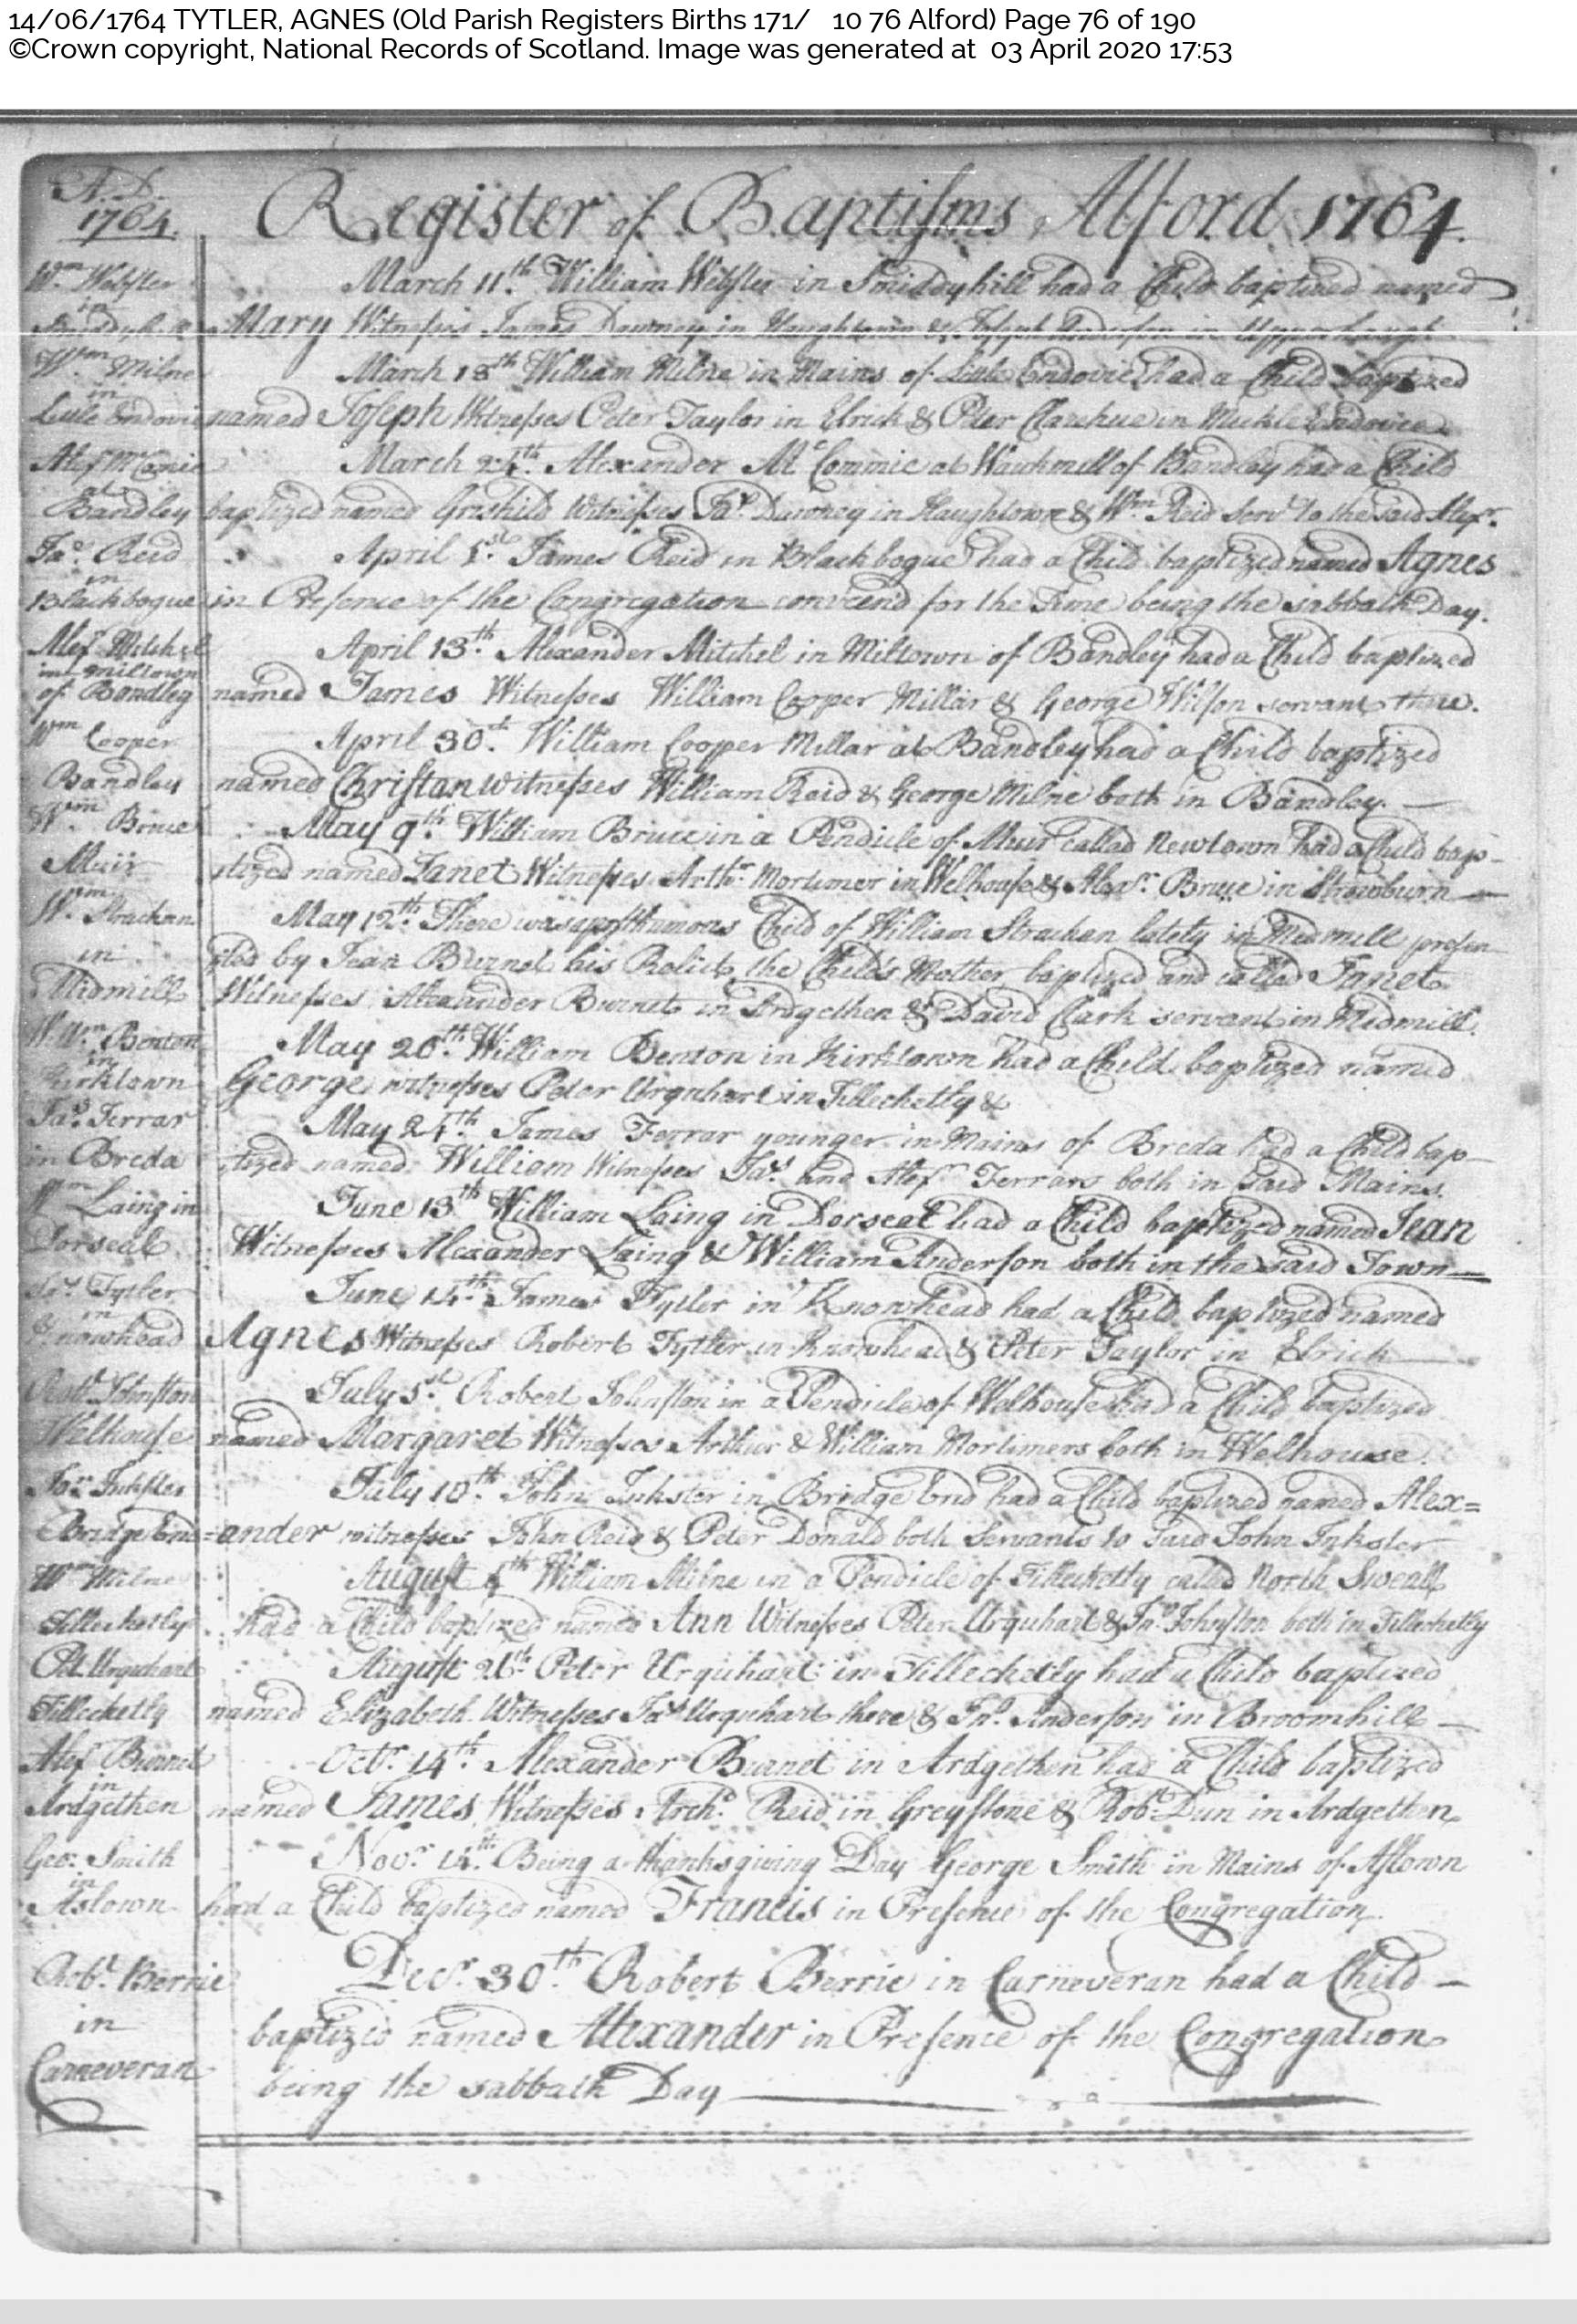 14/06/1764 TYTLER, AGNES (Old Parish Registers Births 171/ 10 76 Alford) Page 76 of 190
©Crown copyright, National Records of Scotland. Image was generated at 03 April 2020 17:53
A.D. 1764. Register of Baptisms Alford 1764.
Wm Webster March 11th. William Webster in Smiddyhill had a Child baptized named
in
Mary Witnesses James Downey in Haughtown & Joseph Anderson in
Wm Milne March 18th William Milne in Mains of Little Endovie had a Child baptized
in
Little Endovie named Joseph Witnesses Peter Taylor in Elrick & Peter in Muckle Endovie
Alexr McComie March 24th. Alexander McCommie at Waukmill of Bandley had a Child
at
Bandley baptized named Grishild Witnesses Jas Downey in Haughtown & Wm Reid Servt to the said Alexr.
Jas. Reid April 1st James Reid in Blackbogue had a Child baptized named Agnes
in
Blackbogue in Presence of the Congregation conveend for the Time being the sabbath Day.
Alexr Mitchel April 13th. Alexander Mitchel in Miltown of Bandley had a Child baptized
in Miltown
of Bandley named James Witnesses William Cooper Millar & George Wilson servant there.
Wm Cooper April 30th. William Cooper Millar at Bandley had a Child baptized
Bandley named Christan witnesses William Reid & George Milne both in Bandley. —
Wm Bruce May 9th. William Bruce in a Pendicle of Muir called Newtown had a Child bap-
Muir tized named Janet Witnesses Arthr Mortimer in Welhouse & Alexr. Bruce in Strowburn —
Wm Strachan May 12th. There was a posthumous Child of William Strachan lately in Midmill presen-
in ted by Jean Burnet his Relict, the Child's Mother baptized and called Janet
Midmill Witnesses Alexander Burnet in Ardgethen & David Clark servant in Midmill.
Wm Benton May 20th. William Benton in Kirktown had a Child baptized named
in
Kirktown George witnesses Peter Urquhart in Tillechetly &
Jas. Ferrar May 24th. James Ferrar younger in Mains of Breda had a Child bap-
in Breda tized named William Witnesses Jas. and Alexr Ferrars both in said Mains.
Wm Laing in June 13th William Laing in Dorseat had a Child baptized named Jean
Dorseat Witnesses Alexander Laing & William Anderson both in the said Town —
Jas. Tytler June 14th James Tytler in Knowhead had a Child baptized named
in
Knowhead Agnes Witnesses Robert Tytler in Knowhead & Peter Taylor in Elrick
Robt. Johnston July 5th Robert Johnston in a Pendicle of Welhouse had a Child baptized
Welhouse named Margaret Witnesses Arthur & William Mortimers both in Welhouse.
Jon Inkster July 10th. John Inkster in Bridge End had a Child baptized named Alex=
Bridge End =ander witnesses John Reid & Peter Donald both Servants to said John Inkster
Wm Milne August William Milne in a Pendicle of Tillechetly called North Sweall
Tillechetly had a Child baptized named Ann Witnesses Peter Urquhart & Jno. Johnston both in Tillechetly
Pet. Urquhart August 26th. Peter Urquhart in Tillechetly had a Child baptized
Tillechetly named Elizabeth Witnesses Jas Urquhart there & Jno. Anderson in Broomhill —
Alexr Burnet Octr. 14th. Alexander Burnet in Ardgethen had a Child baptized
in
Ardgethen named James. Witnesses Archd. Reid in Greystone & Robt. Dun in Ardgethen.
Geo. Smith Novr. 14th. Being a thanksgiving Day George Smith in Mains of Astown
in
Astown had a Child baptized named Francis in Presence of the Congregation.
Robt. Berrie Decr. 30th. Robert Berrie in Carneveran had a Child —
in baptized named Alexander in Presence of the Congregation
Carneveran being the sabbath Day